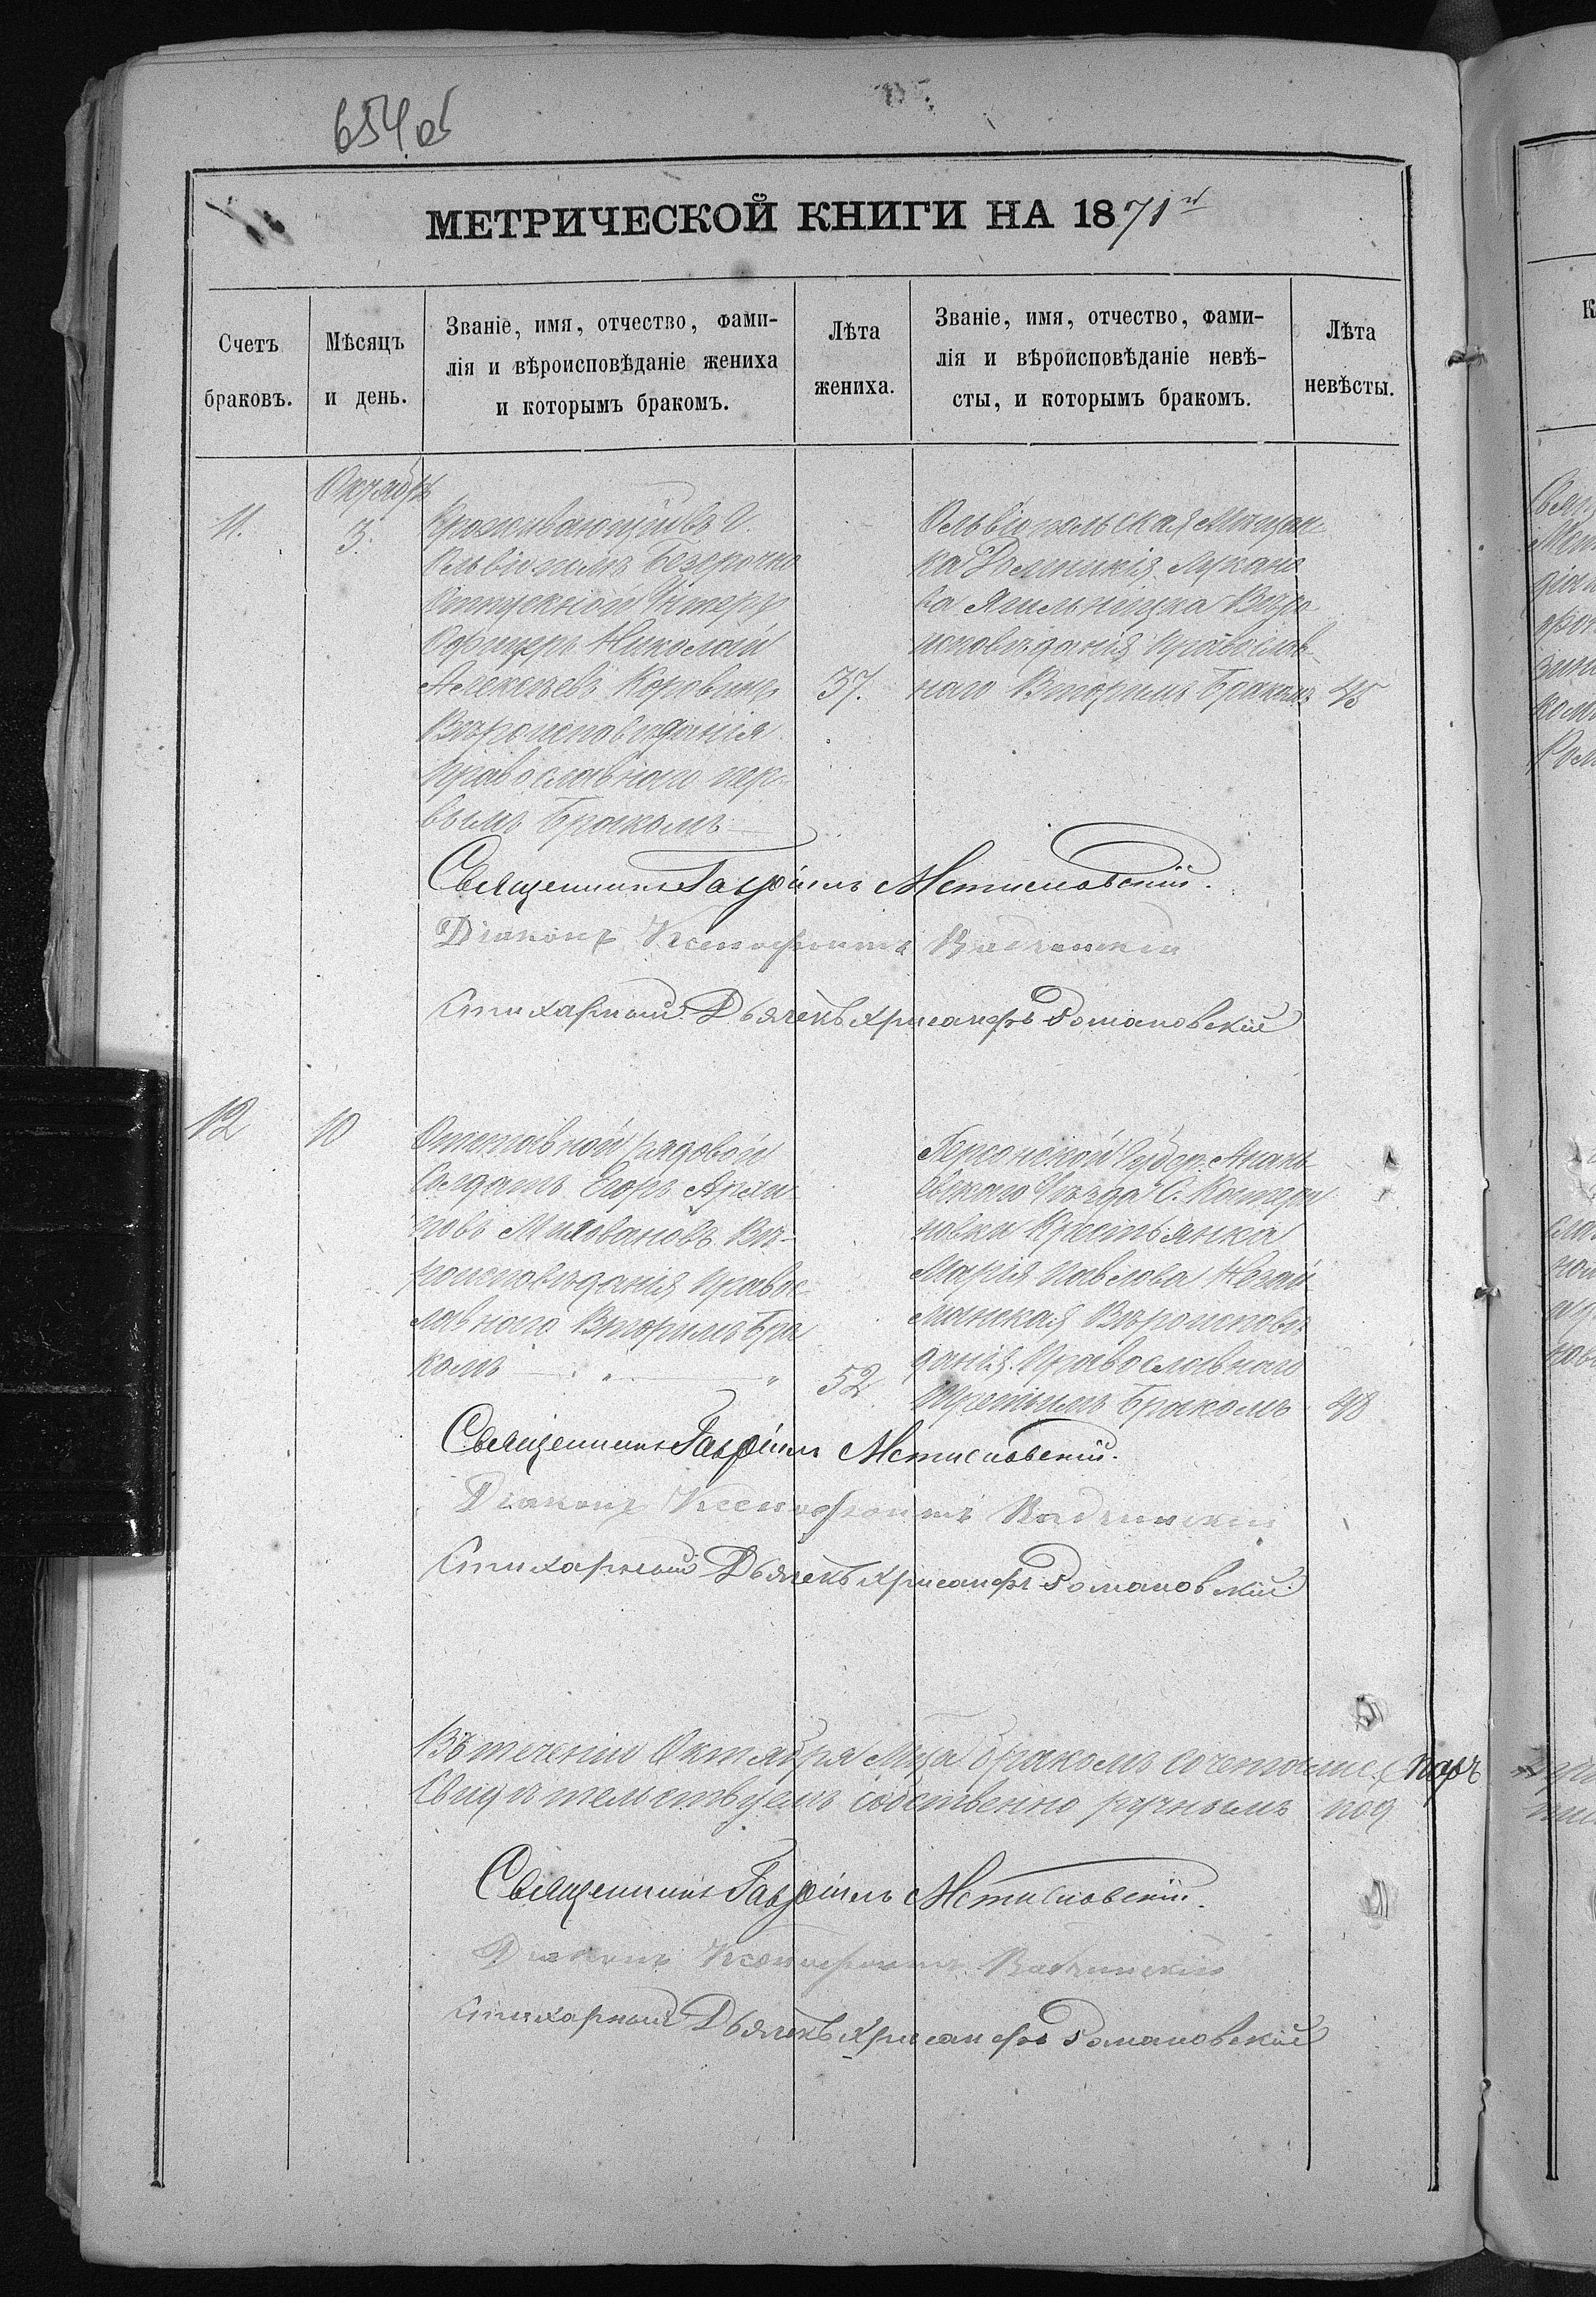 654 об
МЕТРИЧЕСКОЙ КНИГИ НА 1871й
Счетъ браковъ.
Мѣсяцъ и день.
Званіе, имя, отчество, фами-
лія и вѣроисповѣданіе жениха
и которымъ бракомъ.
Лѣта жениха.
Званіе, имя, отчество, фами-
лія и вѣроисповѣданіе невѣ-
сты, и которымъ бракомъ.
Лѣта невѣсты.
Октябрь
11.
3.
Проживающій въ г.
Ольвіополѣ Безсрочно
Отпускной Унтеръ
Офицеръ Николай
Алексѣевъ Коровинъ
Вѣроисповѣданія
Православнаго пер-
вымъ Бракомъ
37.
Ольвіопольская Мѣщан-
ка
ва Ягельницка Вѣро
исповѣданія Православ-
наго Вторимъ Бракомъ
45
Священникъ Гавріилъ Мстиславскій.
Діаконъ Ксенофонтъ
Стихарный Дьячекъ Хрисанфъ Романовскій
12
10
Отставной рядовой
Солдатъ Егоръ Архи
повъ Миловановъ Вѣ-
роисповѣданія Правос-
лавнаго Вторимъ Бра
комъ
52
Херсонской Губер. Анань
евскаго Уѣзда С. Катери
новки Крестьянка
Марія Павлова
Вѣроисповѣ
данія Православнаго
Третьимъ Бракомъ
48
Священникъ Гавріилъ Мстиславскій.
Діаконъ Ксенофонтъ
Стихарный Дьячекъ Хрисанфъ Романовскій
Въ теченіи Октября Мца бракомъ сочеталис. паръ
Свидѣтельствуемъ собственно ручнымъ под
Священникъ Гавріилъ Мстиславскій.
Діаконъ Ксенофонтъ
Стихарный Дьячекъ Хрисанфъ Романовскій